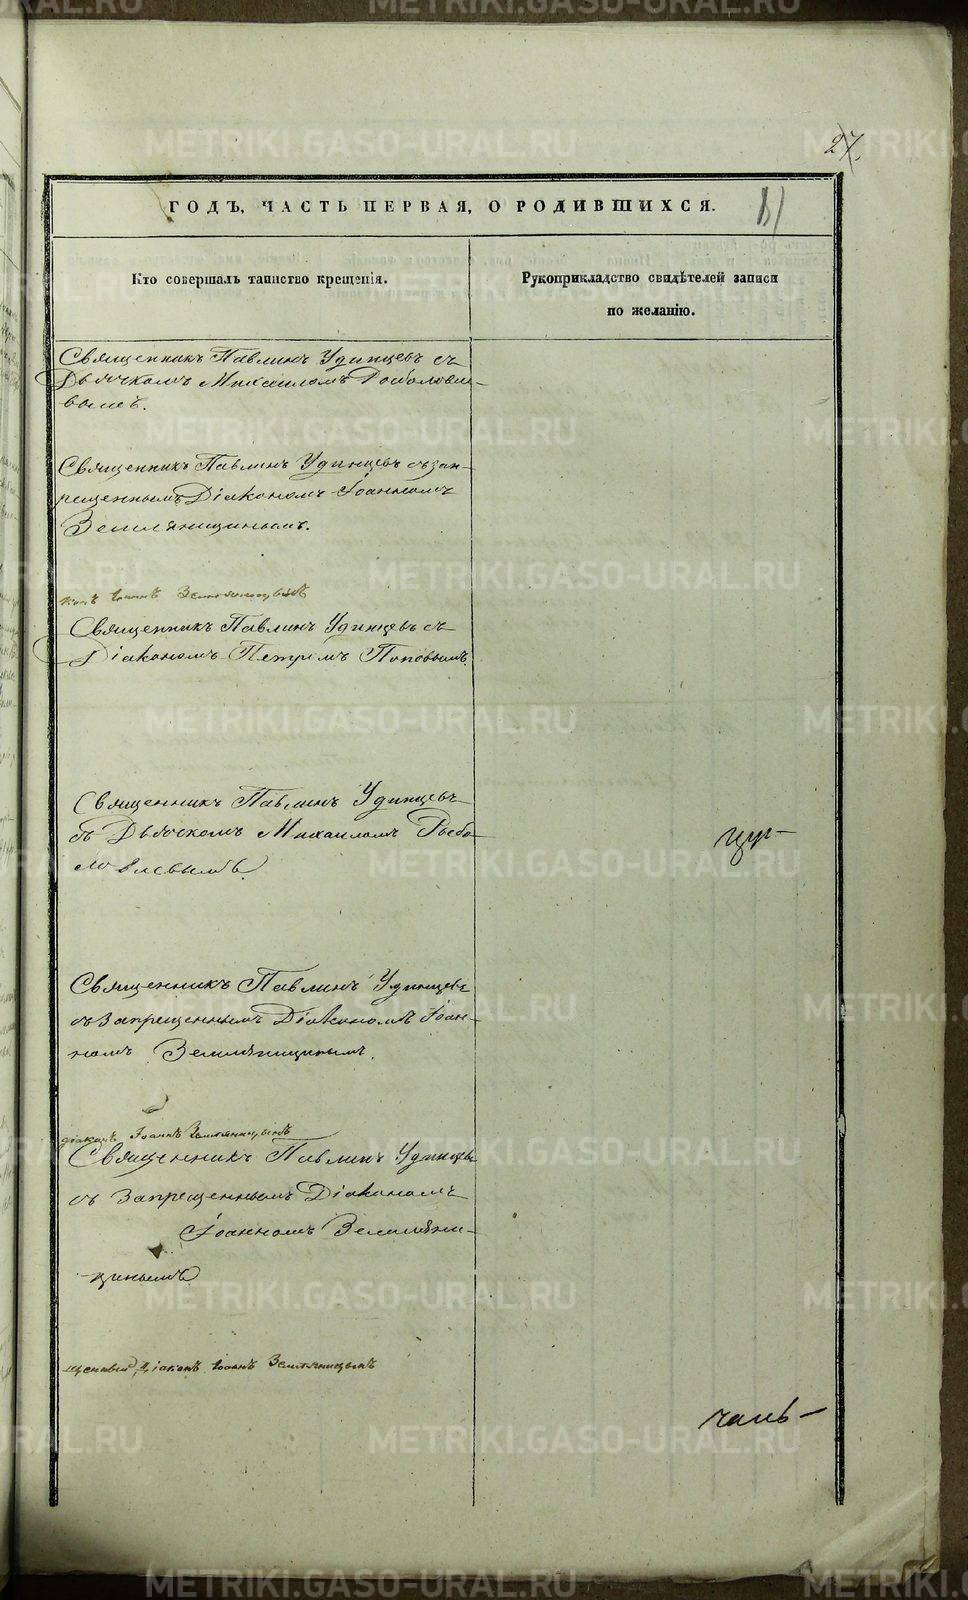 27.
ГОДЪ, ЧАСТЬ ПЕРВАЯ, О РОДИВШИХСЯ.
Кто совершалъ таинство крещенія.
Рукоприкладство свидѣтелей записи
по желанію.
Священникъ Павлинъ Удинцевъ съ
Дьячкомъ Михаиломъ
вымъ.
Священникъ Павлинъ Удинцевъ съ зап-
рещеннымъ Діакономъ Іоанномъ
Земляницинымъ.
Іоаннъ Земляницынъ
Священникъ Павлинъ Удинцевъ съ
Діакономъ Петромъ Поповымъ.
Священникъ Павлинъ Удинцевъ
съ Дьячкомъ Михаиломъ Рыбо-
ловлевымъ.
цур-
Священникъ Павлинъ Удинцевъ
съ Запрещеннымъ Діакономъ Іоан-
номъ Земляницинымъ.
діаконъ Іоаннъ Земляницынъ
Священникъ Павлинъ Удинцевъ
съ Запрещеннымъ Діакономъ
Іоанномъ Земляни-
цинымъ.
щенный Діаконъ Іоаннъ Земляницынъ
чаль-
METRIKI.GASO-URAL.RU